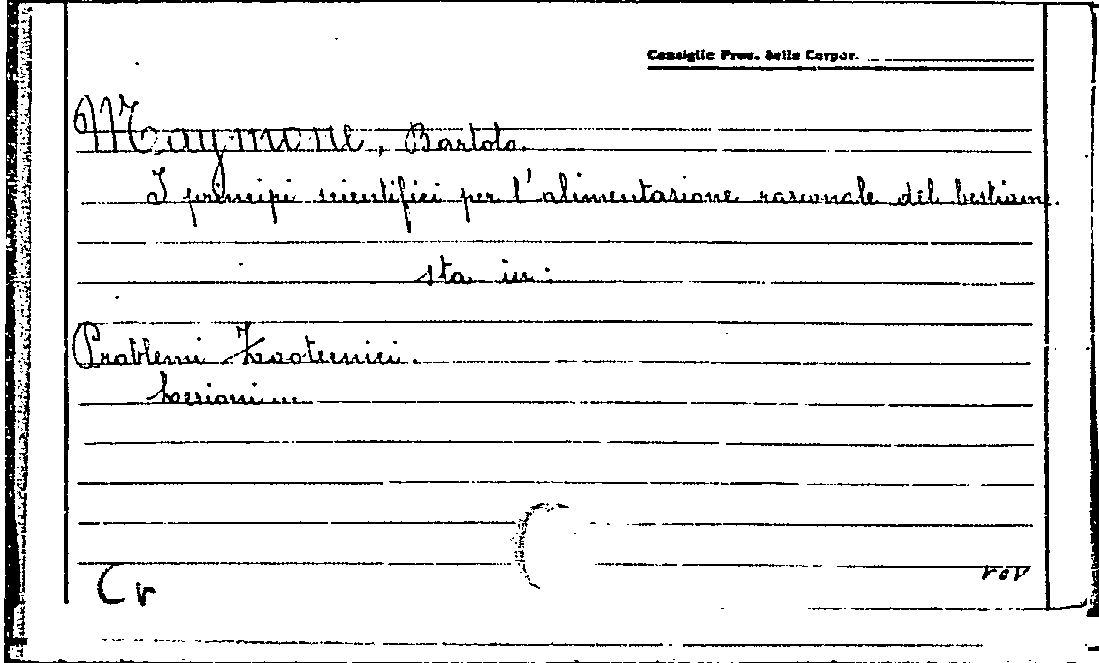 Consiglio Prov. delle Corpor.
Maymone, Bartolo.
I principi scientifici per l'alimentazione razionale del bestiame.
sta in:
Problemi Zootecnici.
Lezioni ...
Cr
rov